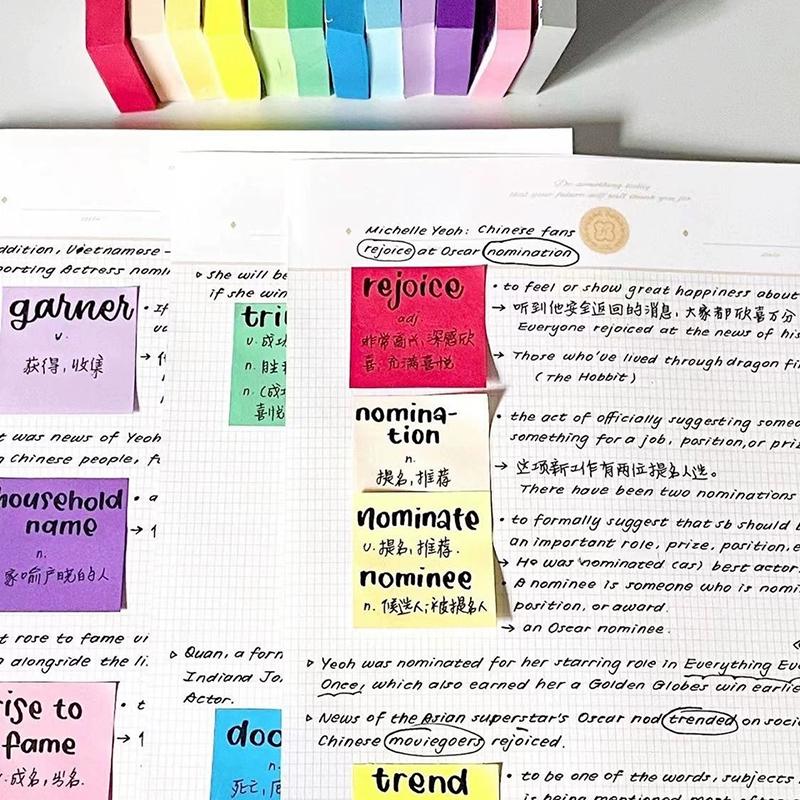 Do something today
that your future self will thank you for
date
date
ddition, Vietnamese-
porting Actress nomi
garner
v.
获得,收集
• If
t was news of Yeoh
n Chinese people, f
household
name
n.
家喻户晓的人
• a
t rose to fame vi
alongside the li
rise to
fame
v. 成名,出名.
• t
▹ She will be
if she win
n. 胜
喜悦
▹ Quan, a form
Indiana Jo
Actor.
doo
n.
死亡,厄
Michelle Yeoh: Chinese fans
rejoice at Oscar nomination
rejoice
adj.
非常高兴,深感欣
喜,充满喜悦
• to feel or show great happiness about
→ 听到他安全返回的消息,大家都欣喜万分
Everyone rejoiced at the news of his
→ Those who've lived through dragon fi
(The Hobbit)
nomina-
tion
n.
提名,推荐
• the act of officially suggesting someo
something for a job, position, or priz
→ 这项新工作有两位提名人选。
There have been two nominations
nominate
v. 提名,推荐.
nominee
n. 候选人;被提名人
• to formally suggest that sb should b
an important role, prize, position, e
→ He was nominated (as) best actor
• A nominee is someone who is nomi
position, or award.
→ an Oscar nominee.
▹ Yeoh was nominated for her starring role in Everything Eve
Once, which also earned her a Golden Globes win earlie
▹ News of the Asian superstar's Oscar nod trended on soci
Chinese moviegoers rejoiced.
trend
• to be one of the words, subjects
is being mentioned most often